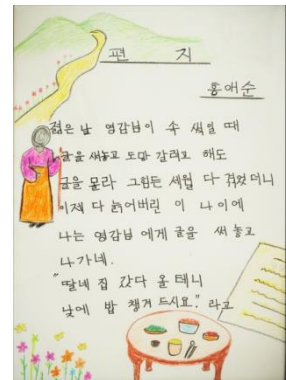 편 지
홍애순
젊은 날 영감님이 속 썩일 때
글을 써놓고 도망 갈려고 해도
글을 몰라 그 힘든 세월 다 겪었더니
이제 다 늙어버린 이 나이에
나는 영감님에게 글을 써 놓고
나가네.
"딸네 집 갔다 올 테니
낮에 밥 챙겨 드시요." 라고